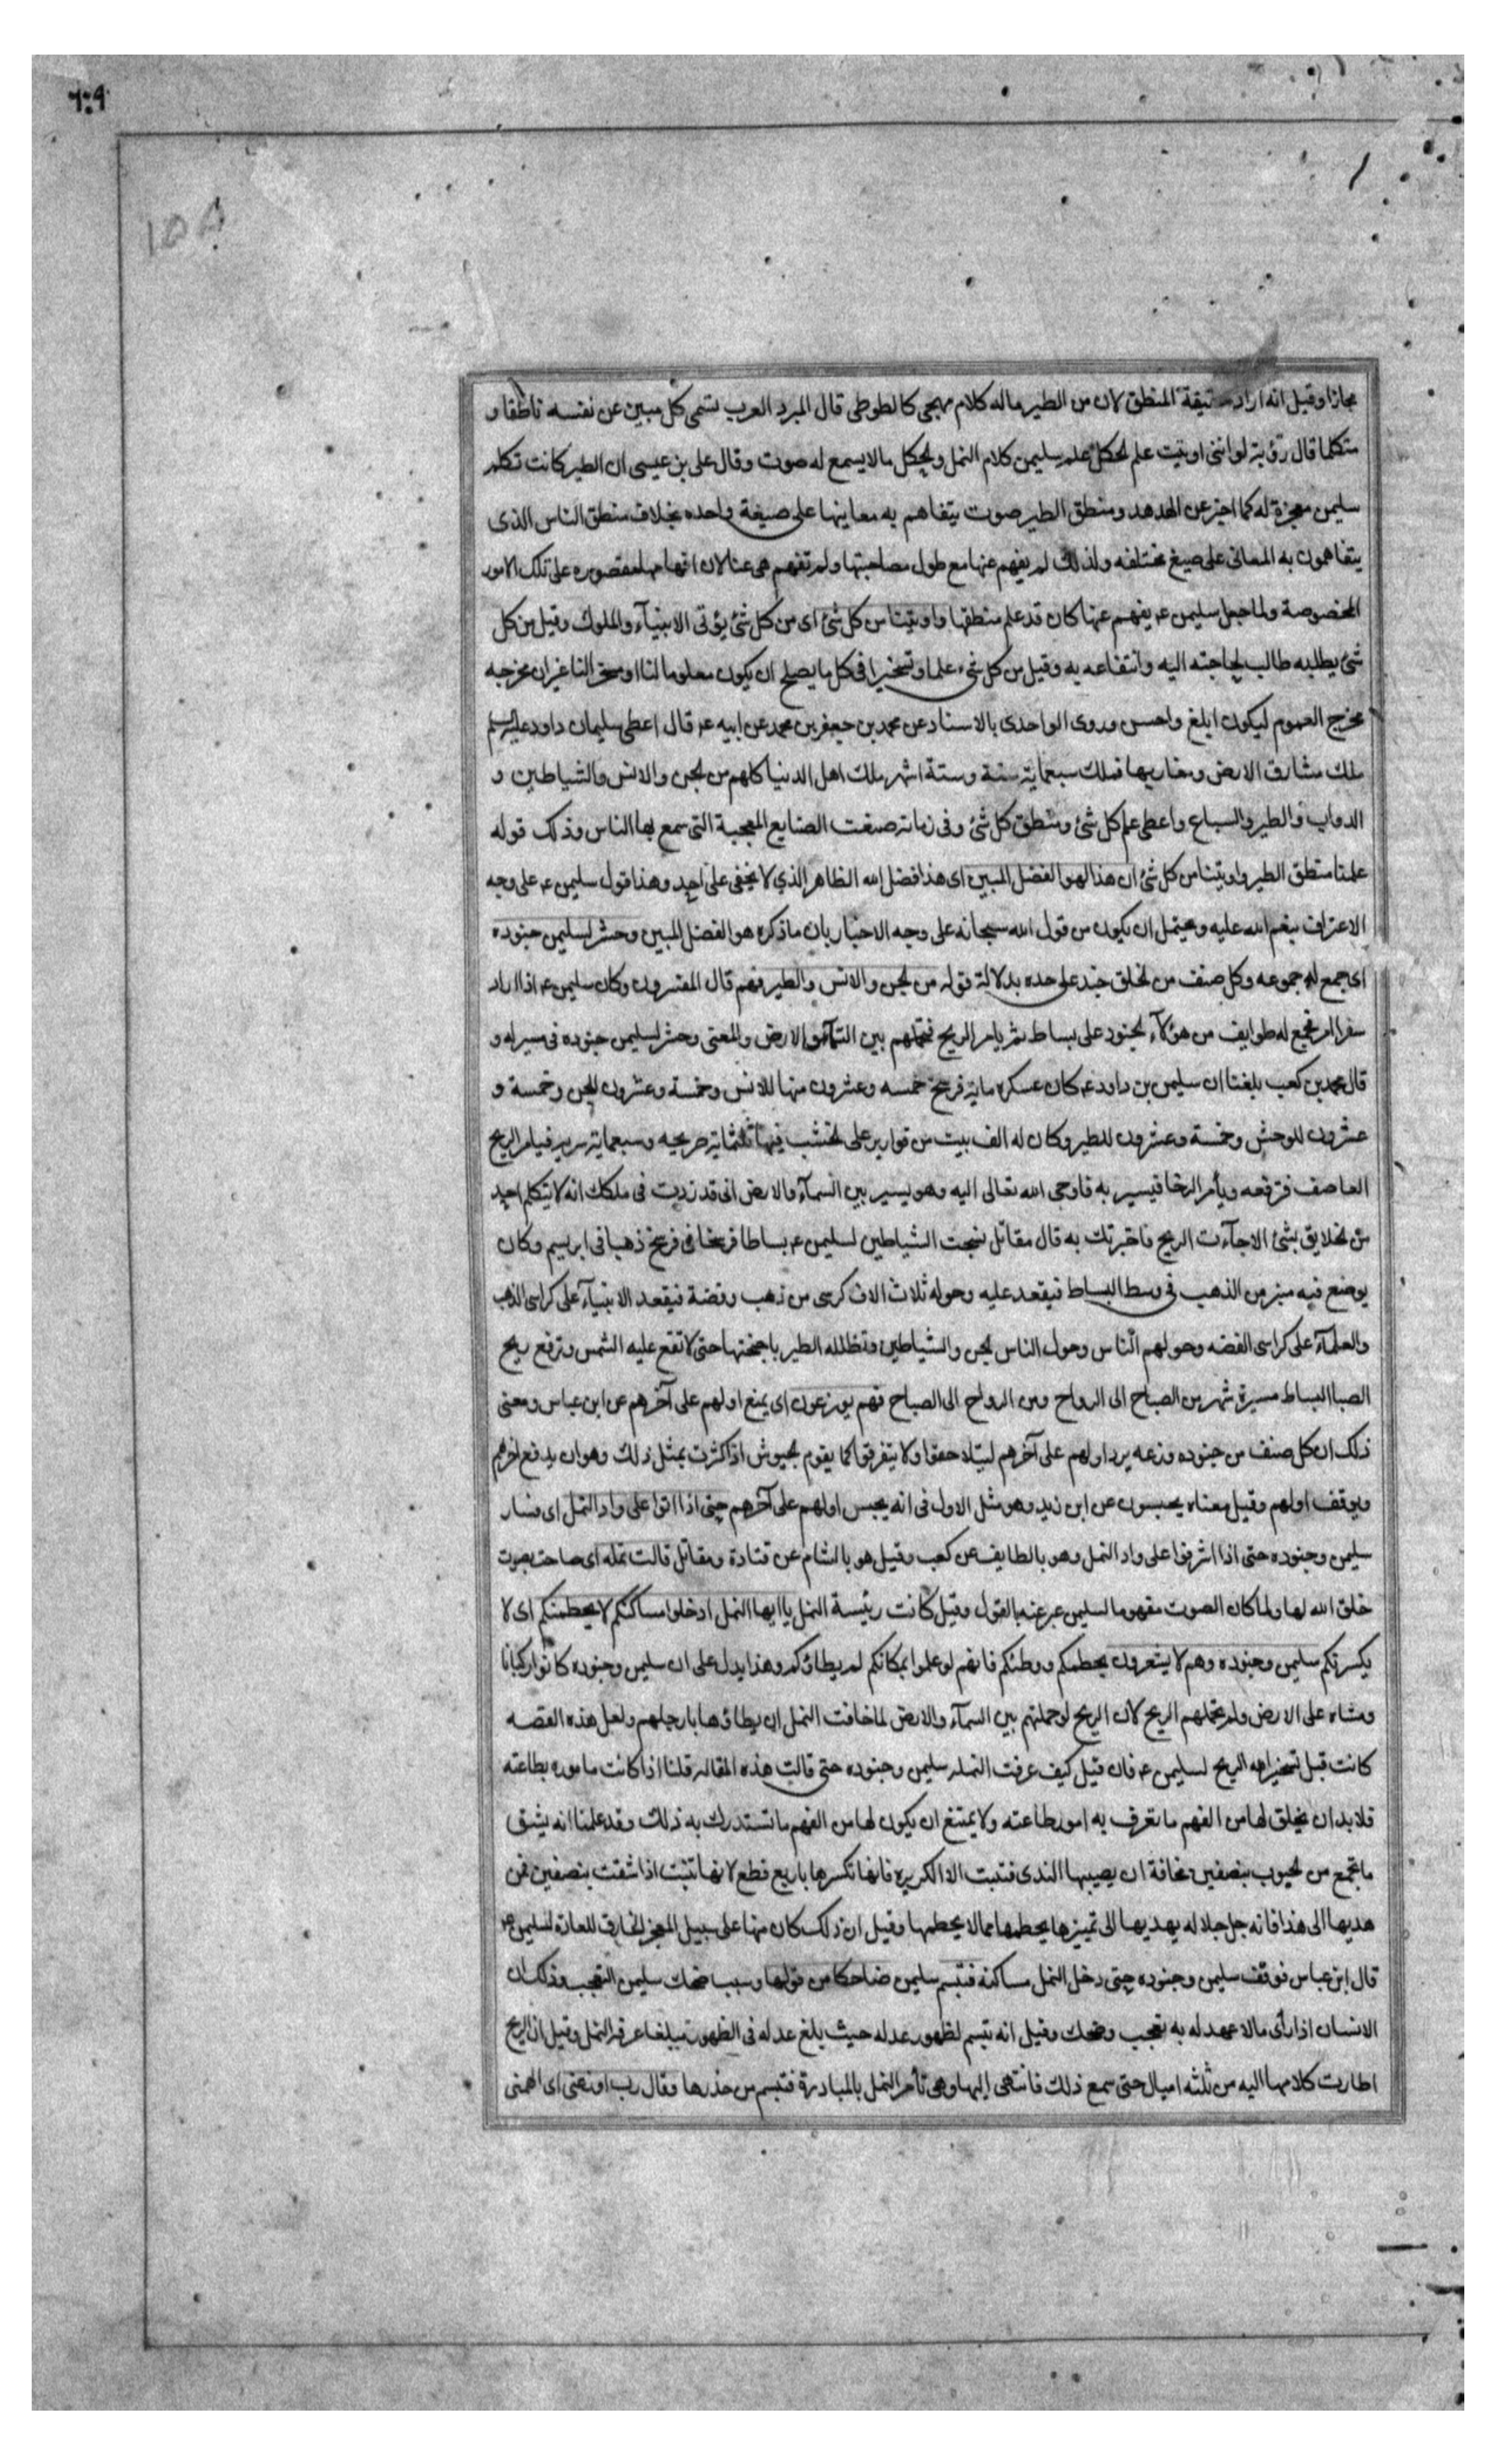 ۲۰۹
۱۵۸
مجازا وقيل انه اراد حقيقة المنطق لان من الطير ماله كلام مهجى كالطوطى قال المبرد العرب تسمى كل مبين عن نفسه ناطقا و
متكلما قال رؤبة لو اننى اوتيت علم الحكل علم سليمن كلام النمل والحكل مالا يسمع له صوت وقال على بن عيسى ان الطير كانت تكلم
سليمن معجزة له كما اخبر عن الهدهد ومنطق الطير صوت يتفاهم به معانيها على صيغة واحده بخلاف منطق الناس الذى
يتفاهمون به المعانى على صيغ مختلفه ولذلك لم يفهم عنها مع طول مصاحبتها ولم تفهم هى عنا لان افهامها مقصوره على تلك الامور
المخصوصة ولما جعل سليمن عم يفهم عنها كان قد علم منطقها واوتينا من كل شئ اى من كل شئ يؤتى الانبيآء والملوك وقيل من كل
شئ يطلبه طالب لحاجته اليه وانتفاعه به وقيل من كل شىء علما وتسخيرا فى كل ما يصلح ان يكون معلوما لنا او مسخرا لنا غير ان مخرجه
مخرج العموم ليكون ابلغ واحسن وروى الواحدى بالاسناد عن محمد بن جعفر بن محمد عن ابيه عم قال اعطى سليمان داود عليه السلم
ملك مشارق الارض ومغاربها فملك سبعماية سنة وستة اشهر ملك اهل الدنيا كلهم من الجن والانس والشياطين و
الدواب والطير والسباع واعطى علم كل شئ ومنطق كل شئ وفى زمانه صنعت الصنايع المعجبة التى سمع بها الناس وذلك قوله
علمنا منطق الطير واوتينا من كل شئ ان هذا لهو الفضل المبين اى هذا فضل الله الظاهر الذي لا يخفى على احد وهذا قول سليمن عم على وجه
الاعتراف بنعم الله عليه ويحتمل ان يكون من قول الله سبحانه على وجه الاخبار بان ما ذكره هو الفضل المبين وحشر لسليمن جنوده
اى جمع له جموعه وكل صنف من الخلق جند على حده بدلالة قوله من الجن والانس والطير فهم قال المفسرون وكان سليمن عم اذا اراد
سفرا امر فجمع له طوايف من هؤلآء الجنود على بساط ثم يامر الريح فتحملهم بين السمآء والارض والمعنى وحشر لسليمن جنوده فى مسيرله و
قال محمد بن كعب بلغنا ان سليمن بن داود عم كان عسكره ماية فرسخ خمسه وعشرون منها للانس وخمسة وعشرون للجن وخمسة و
عشرون للوحش وخمسة وعشرون للطير وكان له الف بيت من قوارير على الخشب فيها ثلثماية صريحه وسبعماية سريه فيامر الريح
العاصف فترفعه ويأمر الرخا فيسير به فاوحى الله تعالى اليه وهو يسير بين السمآء والارض انى قد زدت فى ملكك انه لا يتكلم احد
من الخلايق بشئ الا جآءت الريح فاخبرتك به قال مقاتل نسجت الشياطين لسليمن عم بساطا فرسخا فى فرسخ ذهبا فى ابريسم وكان
يوضع فيه منبر من الذهب فى وسط البساط فيقعد عليه وحوله ثلاث الاف كرسى من ذهب وفضة فيقعد الانبيآء على كراسى الذهب
والعلمآء على كراسى الفضه وحولهم الناس وحول الناس الجن والشياطين وتظلله الطير باجنحتها حتى لا تقع عليه الشمس وترفع ريح
الصبا البساط مسيرة شهر من الصباح الى الرواح ومن الرواح الى الصباح فهم يوزعون اى يمنع اولهم على آخرهم عن ابن عباس ومعنى
ذلك ان كل صنف من جنوده وزعه يرد اولهم على آخرهم ليتلاحقوا ولا يتفرقوا كما يقوم الجيوش اذا كثرت بمثل ذلك وهو ان يدفع اخرهم
ويوقف اولهم وقيل معناه يحبسون عن ابن زيد وهو مثل الاول فى انه يحبس اولهم على آخرهم حتى اذا اتوا على واد النمل اى فسار
سليمن وجنوده حتى اذا اشرفوا على واد النمل وهو بالطايف عن كعب وقيل هو بالشام عن قتادة ومقاتل قالت نمله اى صاحت بصوت
خلق الله لها ولما كان الصوت مفهوما لسليمن عبر عنه بالقول وقيل كانت رئيسة النمل يا ايها النمل ادخلوا مساكنكم لا يحطمنكم اى لا
يكسرنكم سليمن وجنوده وهم لا يشعرون بحطمكم ووطئكم فانهم لو علموا بمكانكم لم يطاؤكم وهذا يدل على ان سليمن وجنوده كانوا ركبانا
ومشاه على الارض ولم تحملهم الريح لان الريح لو حملتهم بين السمآء والارض لما خافت النمل ان يطاؤها بارجلهم ولعل هذه القصه
كانت قبل تسخير الله الريح لسليمن عم فان قيل كيف عرفت النمله سليمن وجنوده حتى قالت هذه المقاله قلنا اذا كانت ماموره بطاعته
فلا بد ان يخلق لها من الفهم ما تعرف به امور طاعته ولا يمتنع ان يكون لها من الفهم ما تستدرك به ذلك وقد علمنا انه يشق
ما تجمع من الحبوب بنصفين مخافة ان يصيبها الندى فتنبت الا الكزبره فانها تكسرها باربع قطع لانها تنبت اذا شقت بنصفين فمن
هديها الى هذا فانه جل جلاله يهديها الى تمييز ما يحطمها مما لا يحطمها وقيل ان ذلك كان منها على سبيل المعجز الخارق للعادة لسليمن عم
قال ابن عباس فوقف سليمن وجنوده حتى دخل النمل مساكنه فتبسم سليمن ضاحكا من قولها وسبب ضحك سليمن التعجب وذلك ان
الانسان اذا رأى مالا عهد له به تعجب وضحك وقيل انه تبسم لظهور عدله حيث بلغ عدله فى الظهور مبلغا عرفه النمل وقيل ان الريح
اطارت كلامها اليه من ثلثه اميال حتى سمع ذلك فانتهى اليها وهى تأمر النمل بالمبادرة فتبسم من حذرها وقال رب اوزعنى اى الهمنى